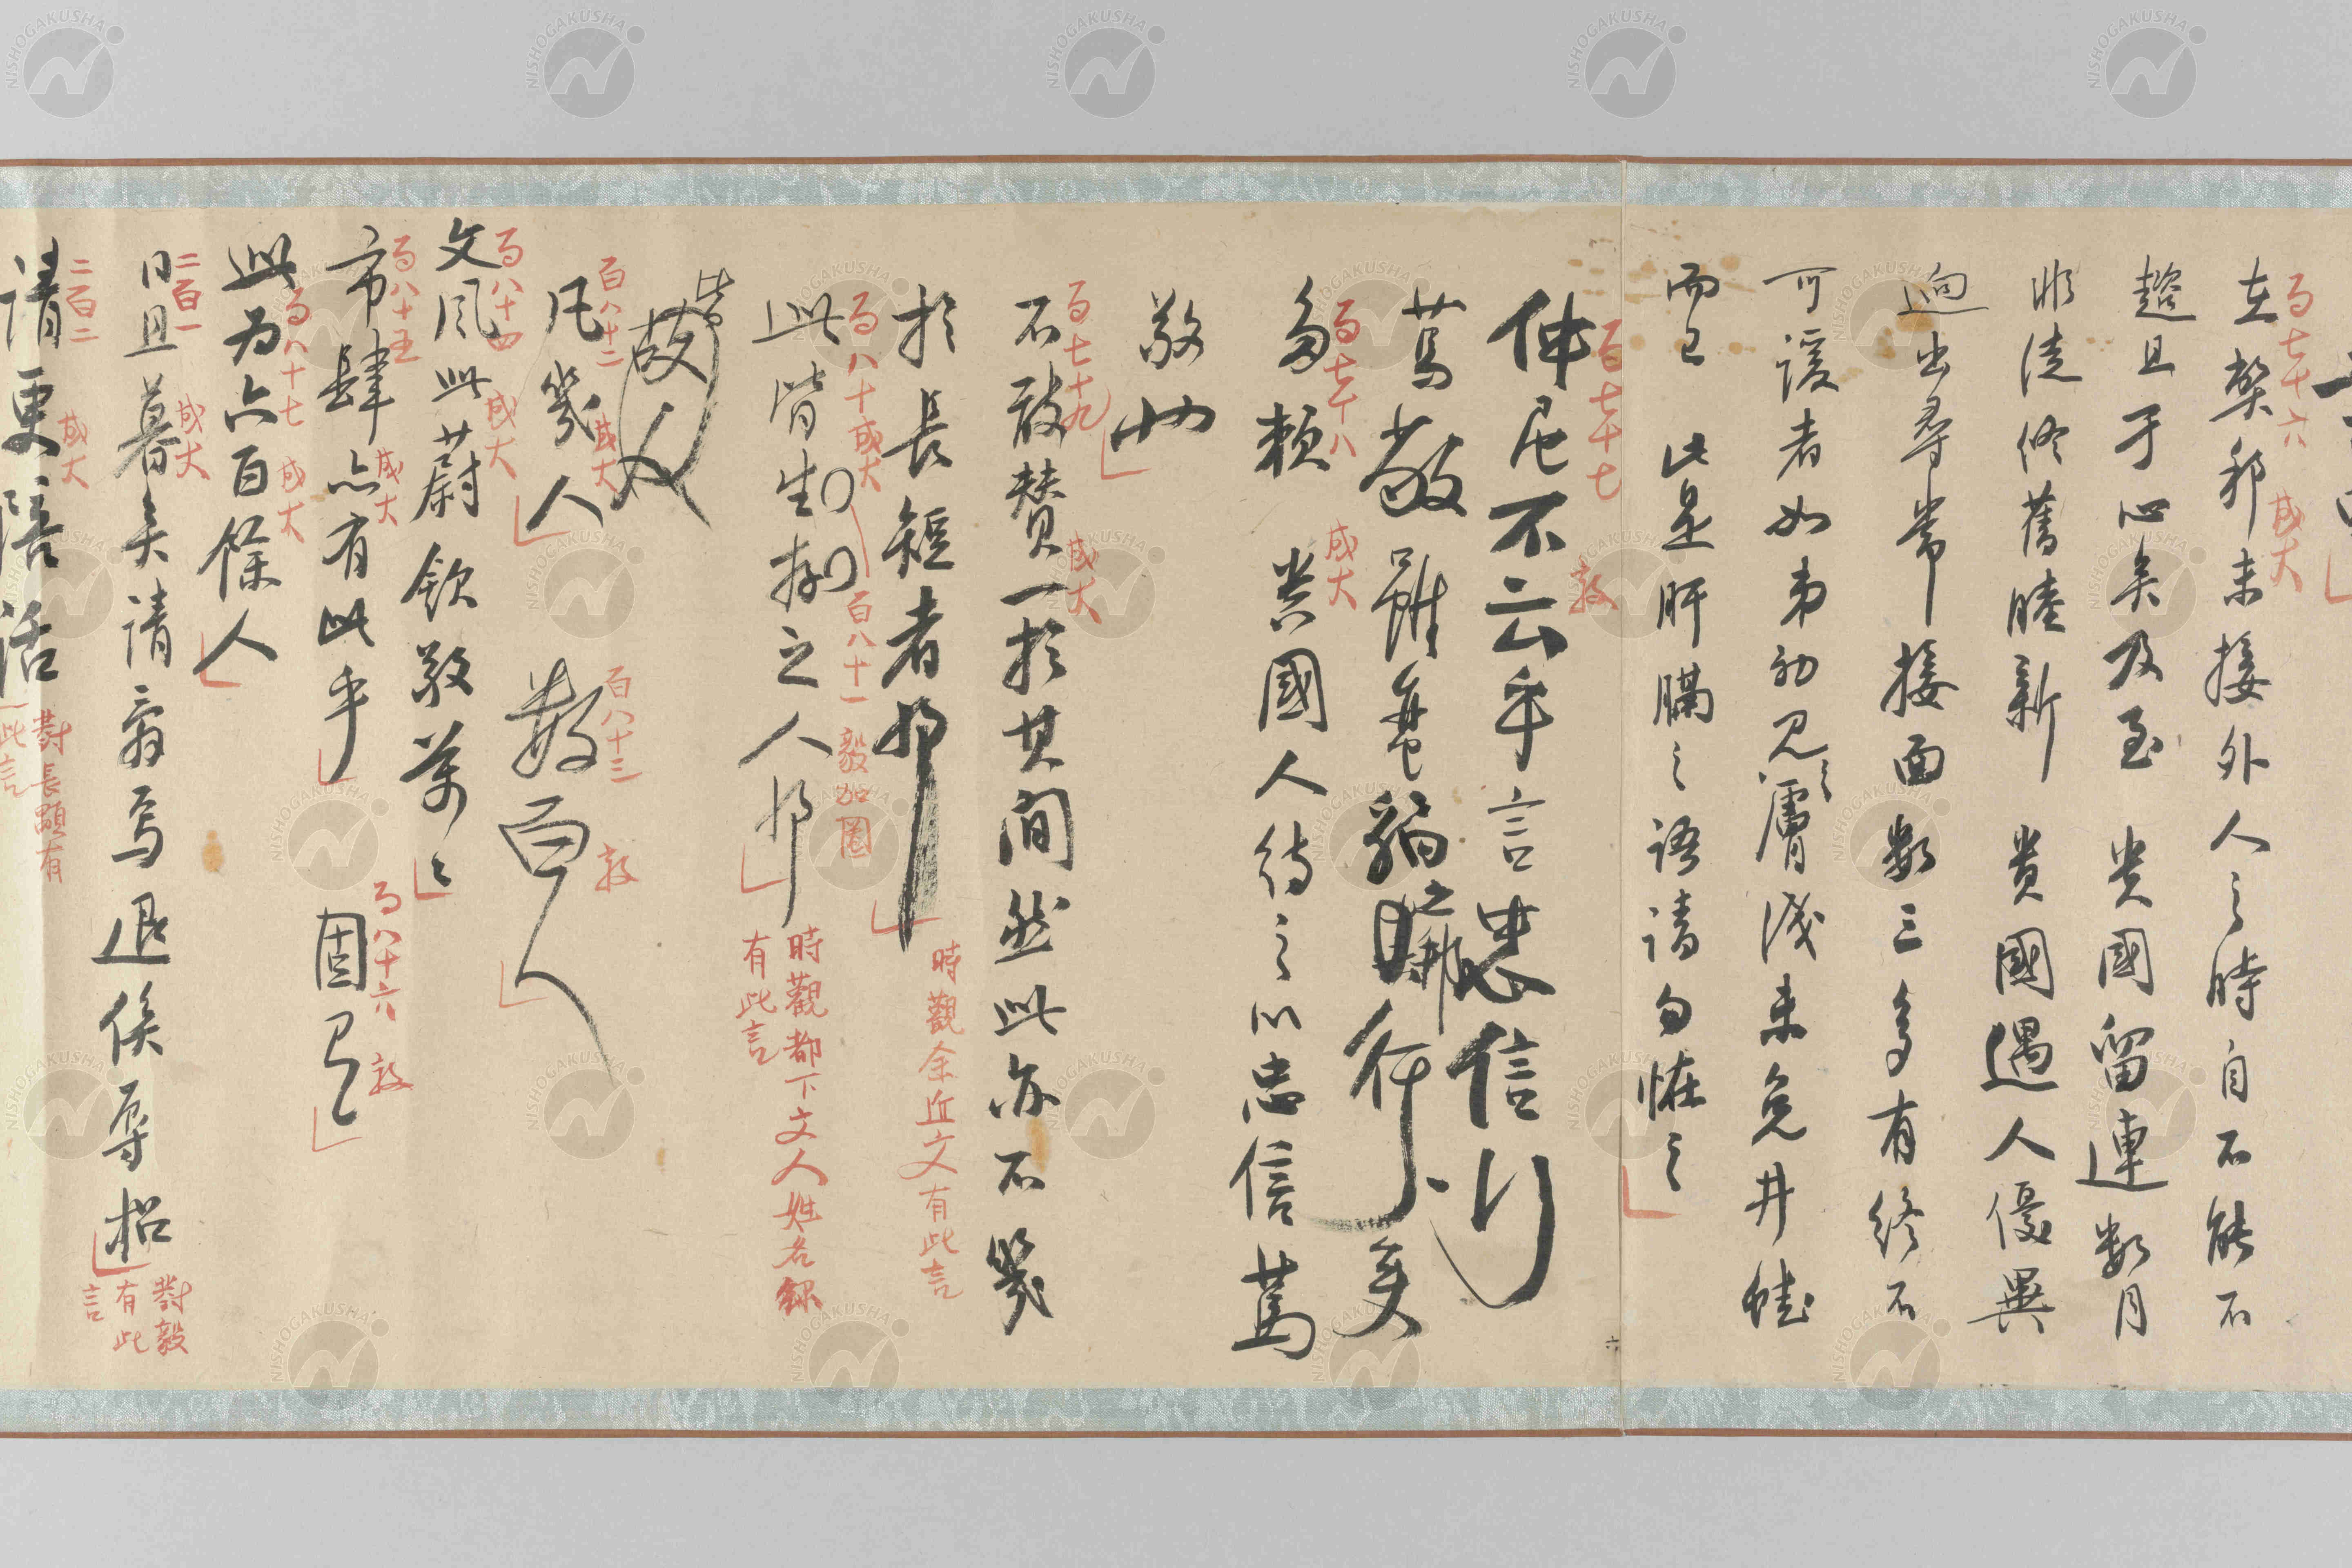 百七十六 成大
在弊邦未接外人之時自不能不
趦且于心矣及至 貴國留連數月
非徒修舊睦新 貴國遇人優異
迥出尋常接面數三多有終不
可諼者如弟初見之膚淺未免井蛙
而已 此是肝膈之語請勿怪之
百七十七 毅
仲尼不云乎言忠信行
篤敬雖蠻貊之邦行矣
百七十八 成大
多賴 貴國人待之以忠信篤
敬也
百七十九 成大
不敢贊一於其間然此亦不幾
於長短者耶
時觀余近文有此言
百八十 成大
此皆剞劂之人耶
時觀都下文人姓名錄
有此言
百八十一 毅加圈
皆
故人
百八十二 成大
凡幾人
百八十三 毅
數百人
百八十四 成大
文風此蔚欽敬萬々
百八十五 成大
市肆亦有此乎
百八十六 毅
固有
百八十七 成大
此爲六百餘人
二百一 成大
日且暮矣請辭焉退俟辱招
對毅
有此
言
二百二 成大
請更陪活
對長顯有
此言
NISHOGAKUSHA